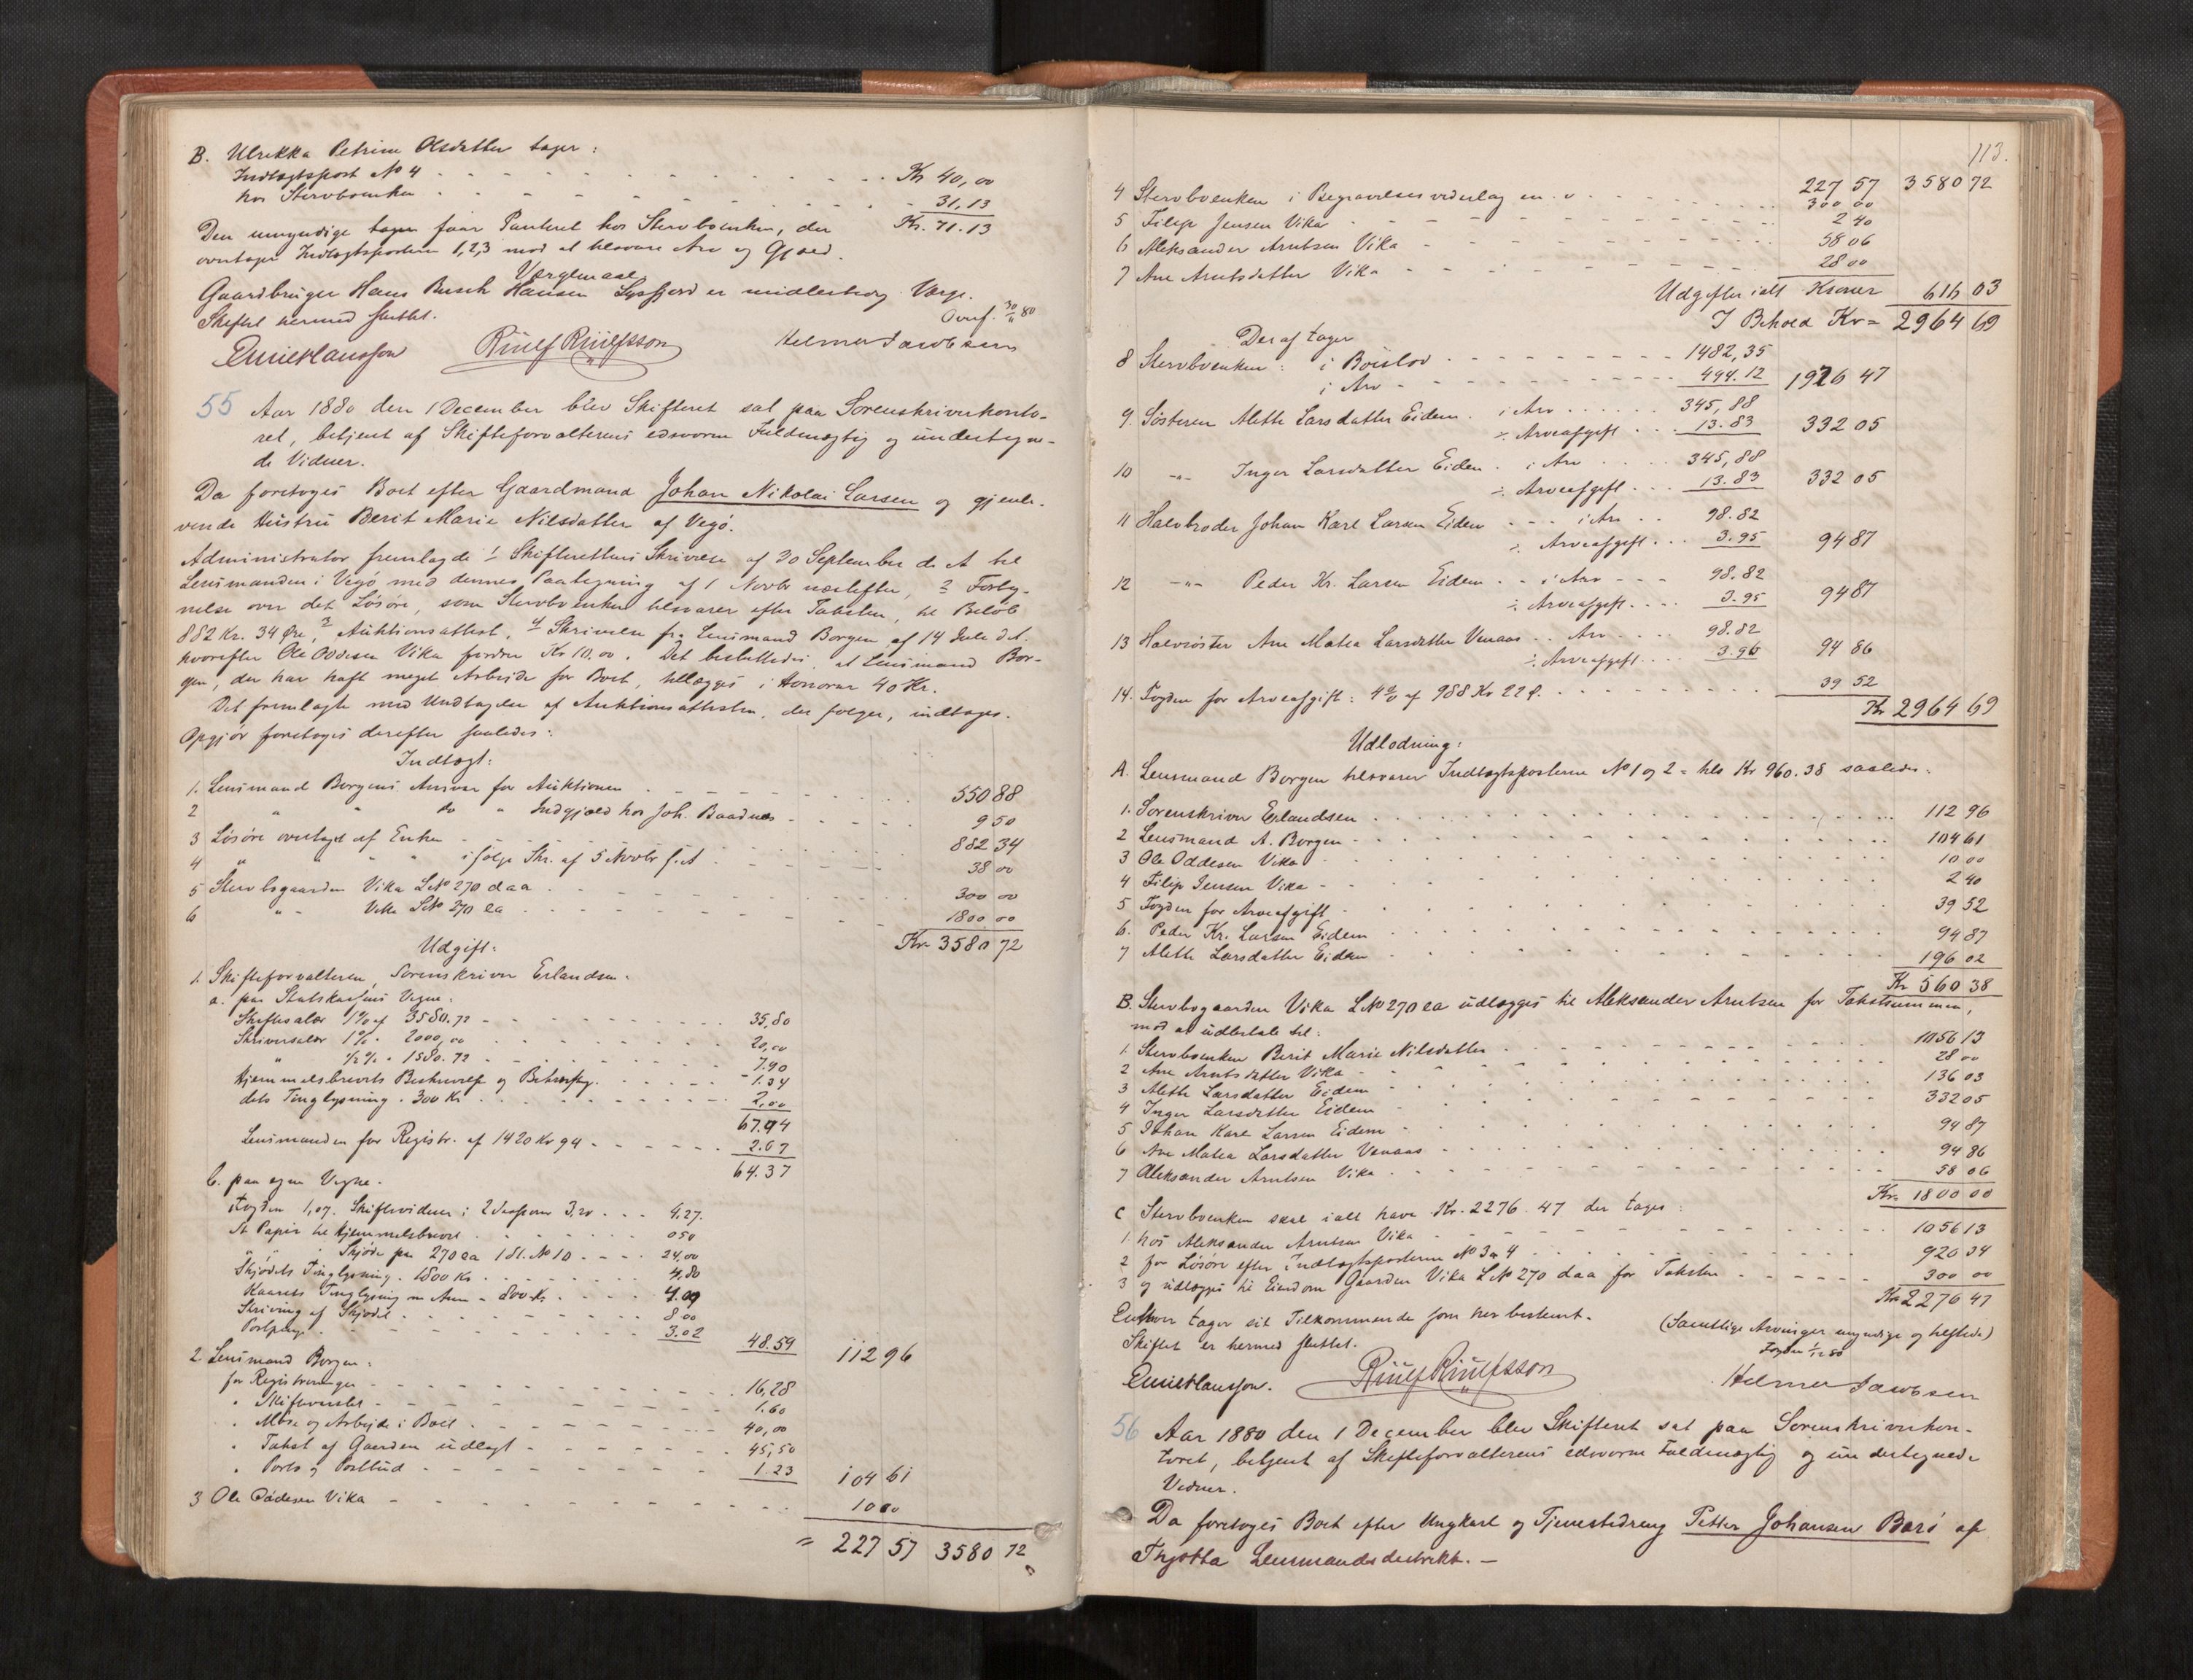 B. Ulrikka Petrine Olsdatter tager:
Indtægtspost No 4 Kr 40,00
hos Stervboenken 31,13
Kr. 71.13
Den umyndige tager faar Panteret hos Stervboenken, der
overtager Indtægtsposterne 1,2,3 mod at besvare Arv og Gjæld.
Værgemaal
Gaardbruger Hans Busch Hansen er midlertidig Værge.
Skiftet hermed sluttet. Overf. 30/11 80
Emil Hansson Riulf Riulfsson Helmer Jacobsen
55 Aar 1880 den 1 December blev Skifteret sat paa Sorenskriverkonto-
ret, betjent af Skifteforvalterens edsvorne Fuldmægtig og undertegne-
de Vidner.
Da foretoges Boet efter Gaardmand Johan Nikolai Larsen og gjenle-
vende Hustru Berit Marie Nilsdatter af Vegø.
Administrator fremlagde 1 Skifterettens Skrivelse af 30 September d. A til
Lensmanden i Vegø med dennes Paategning af 1 Novbr næstefter, 2 Forteg-
nelse over det Løsøre, som Stervboenken besvarer efter Taksten, til Beløb
882 Kr. 34 Øre, 3 Auktionsattest, 4 Skrivelse fra Lensmand Borgen af 14 Juli d. A.
hvorefter Ole Oddesen Vika fordrer Kr 10,00. Det besluttedes, at Lensmand Bor-
gen, der har haft meget Arbeide for Boet, tillægges i Honorar 40 Kr.
Det fremlagte med Undtagelse af Auktionsattesten, der følger, indtages.
Opgjør foretoges derefter saaledes:
Indtægt:
1. Lensmand Borgens Ansvar for Auktionen 550 88
2 " do " Indgjæld hos Joh. Baadnes 9 50
3 Løsøre overtaget af Enken 882 34
4 " " " ifølge Skr. af 5 Novbr f. A 38 00
5 Stervbogaarden Vika L No 270 daa 300 00
6 " - Vika L No 270 ea 1800 00
Kr 3580 72
Udgift:
1. Skifteforvalteren, Sorenskriver Erlandsen.
a. paa Statskassens Vegne:
Skiftesalær 1% af 3580.72 35,80
Skriversalær 1% - 2000,00 20,00
" 1/2% - 1580.72 7.90
Hjemmelsbrevets Beskrivelse og Bekræft. 1.24
dets Tinglysning - 300 Kr 2,00
67.44
Lensmanden for Registr. af 1420 Kr 94 2.07
64.37
b. paa egne Vegne.
Fogden 1,07. Skiftevidner i 2 Sessioner 3,20 4,27.
St. Papir til Hjemmelsbrevet 0 50
" " Skjøde paa 270 ea 1 Kl. No 10 24,00
Skjødets Tinglysning - 1800 Kr 4,80
Kaarets Tinglysning - 800 Kr 4.00
Skrivning af Skjødet 8 00
Postpenge 3.02 48.59 112 96
2 Lensmand Borgen:
for Registreringer 16,28
" Skiftevarsler 1.60
" Møie og Arbeide i Boet 40,00
" Takst af Gaarden udlagt 45,50
" Porto og Postbud 1.23 104 61
3 Ole Oddesen Vika 10 00
= 227 57 3580 72
113.
227 57 3580 72
4 Stervboenken i Begravelsesvederlag m. v 300 00
5 Filip Jensen Vika 2 40
6 Aleksander Arntsen Vika 58 06
7 Ane Arntsdatter Vika 28 00
Udgifter ialt Kroner 616 03
I Behold Kr = 2964 69
Deraf tager
8 Stervboenken: i Boeslod 1482,35
i Arv 494.12 1976 47
9. Søsteren Aleth Larsdatter Eidem. i Arv 345,88
÷ Arveafgift 13.83 332 05
10 -"- Inger Larsdatter Eidem. i Arv 345,88
÷ Arveafgift 13.83 332 05
11 Halvbroder Johan Karl Larsen Eidem i Arv 98.82
÷ Arveafgift 3.95 94 87
12 -"- Peder Kr. Larsen Eidem i Arv 98.82
÷ Arveafgift 3.95 94 87
13 Halvsøster Ane Matea Larsdatter Venaas Arv 98.82
÷ Arveafgift 3.96 94 86
14. Fogden for Arveafgift: 4% af 988 Kr 22 Ø. 39 52
Kr 2964 69
Udlodning:
A. Lensmand Borgen besvarer Indtægtsposterne No 1 og 2 = tils Kr 560.38 saaledes:
1. Sorenskriver Erlandsen 112 96
2 Lensmand A. Borgen 104 61
3 Ole Oddesen Vika 10 00
4 Filip Jensen Vika 2 40
5 Fogden for Arveafgift 39 52
6. Peder Kr. Larsen Eidem 94 87
7 Aleth Larsdatter Eidem 196 02
Kr 560 38
B. Stervbogaarden Vika L No 270 ea udlægges til Aleksander Arntsen for Takstsummen,
mod at udbetale til:
1. Stervboenken Berit Marie Nilsdatter 1056 13
2 Ane Arntsdatter Vika 28 00
3 Aleth Larsdatter Eidem 136 03
4 Inger Larsdatter Eidem 332 05
5 Johan Karl Larsen Eidem 94 87
6 Ane Matea Larsdatter Venaas 94 86
7 Aleksander Arntsen Vika 58 06
Kr. 1800 00
C Stervboenken skal ialt have Kr. 2276.47 der tages:
1. hos Aleksander Arntsen Vika 1056 13
2 for Løsøre efter Indtægtsposterne No 3 & 4 920 34
3 og udlægges til Eiendom Gaarden Vika L No 270 daa for Taksten 300 00
Kr 2276 47
Enhver tager sit Tilkommende som her bestemt. (Samtlige Arvinger myndige og tilstede)
Skiftet er hermed sluttet. Fogden 1/12 80
Emil Hansson. Riulf Riulfsson Helmer Jacobsen
56 Aar 1880 den 1 December blev Skifteret sat paa Sorenskriverkon-
toret, betjent af Skifteforvalterens edsvorne Fuldmægtig og undertegnede
Vidner.
Da foretoges Boet efter Ungkarl og Tjenestedreng Petter Johansen Barø af
Thjøtta Lensmandsdistrikt. —